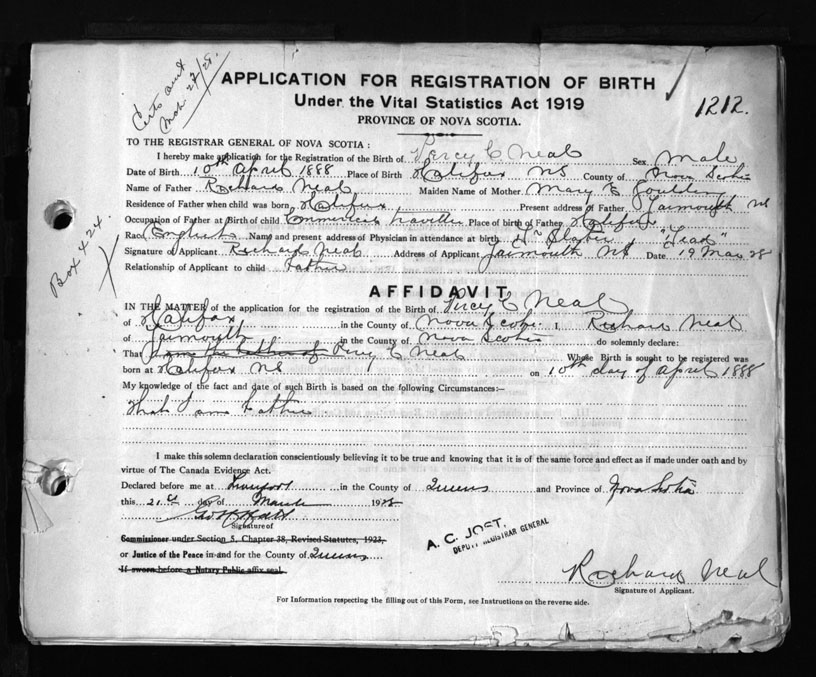 Certs sent
Mch 27/28.
APPLICATION FOR REGISTRATION OF BIRTH
Under the Vital Statistics Act 1919
1212.
PROVINCE OF NOVA SCOTIA.
TO THE REGISTRAR GENERAL OF NOVA SCOTIA :
I hereby make application for the Registration of the Birth of Percy C Neal Sex Male
Date of Birth 10th April 1888 Place of Birth Halifax NS County of Nova Scotia
Name of Father Richard Neal Maiden Name of Mother Mary E
Residence of Father when child was born Halifax Present address of Father Yarmouth NS
Occupation of Father at Birth of child Commercial Traveller Place of birth of Father Halifax
Race English Name and present address of Physician in attendance at birth Dr Slayter "Dead"
Signature of Applicant Richard Neal Address of Applicant Yarmouth NS Date 19 Mar 28
Relationship of Applicant to child Father
Box 424.
AFFIDAVIT
IN THE MATTER of the application for the registration of the Birth of Percy C Neal
of Halifax in the County of Nova Scotia I Richard Neal
of Yarmouth in the County of Nova Scotia do solemnly declare:
That I am the Father of Percy C Neal Whose Birth is sought to be registered was
born at Halifax NS on 10th day of April 1888
My knowledge of the fact and date of such Birth is based on the following Circumstances:—
that I am Father
I make this solemn declaration conscientiously believing it to be true and knowing that it is of the same force and effect as if made under oath and by
virtue of The Canada Evidence Act.
Declared before me at Liverpool in the County of Queens and Province of Nova Scotia
this 21st day of March 1928
Signature of
Commissioner under Section 5, Chapter 38, Revised Statutes, 1923,
or Justice of the Peace in and for the County of Queens
If sworn before a Notary Public affix seal.
A. C. JOST,
DEPUTY REGISTRAR GENERAL
Richard Neal
Signature of Applicant.
For Information respecting the filling out of this Form, see Instructions on the reverse side.